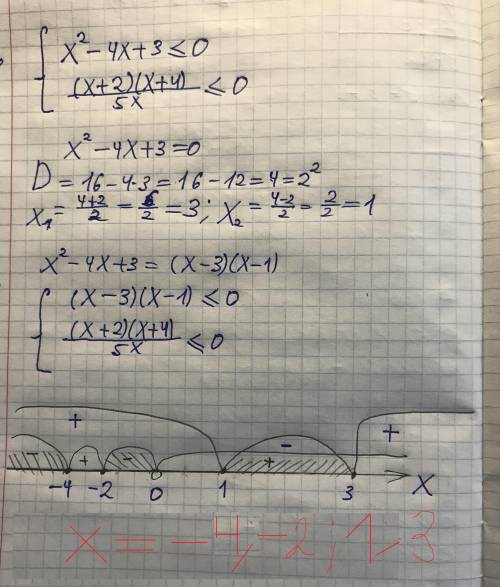 x² - 4x + 3 ≤ 0
(x+2)(x+4)/5x ≤ 0
x² - 4x + 3 = 0
D = 16 - 4·3 = 16 - 12 = 4 = 2²
x₁ = (4+2)/2 = 6/2 = 3; x₂ = (4-2)/2 = 2/2 = 1
x² - 4x + 3 = (x-3)(x-1)
(x-3)(x-1) ≤ 0
(x+2)(x+4)/5x ≤ 0
+ - +
- + - +
-4 -2 0 1 3 X
x = -4; -2; 1; 3